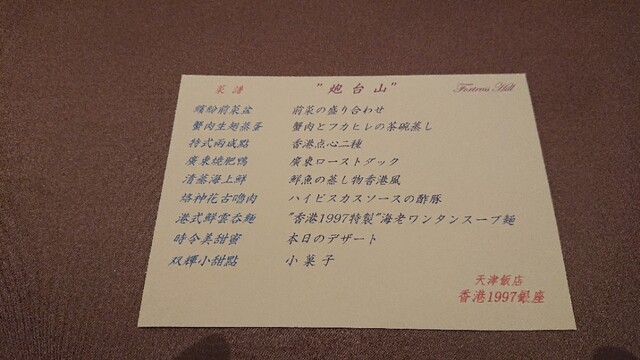 菜譜 "炮台山" Fortress Hill
繽紛前菜盆 前菜の盛り合わせ
蟹肉生翅蒸蛋 蟹肉とフカヒレの茶碗蒸し
特式兩成點 香港点心二種
廣東燒肥鴨 廣東ローストダック
清蒸海上鮮 鮮魚の蒸し物香港風
洛神花古嚕肉 ハイビスカスソースの酢豚
港式鮮雲呑麺 "香港1997特製"海老ワンタンスープ麺
時令美甜蜜 本日のデザート
双輝小甜點 小菓子
天津飯店
香港1997銀座